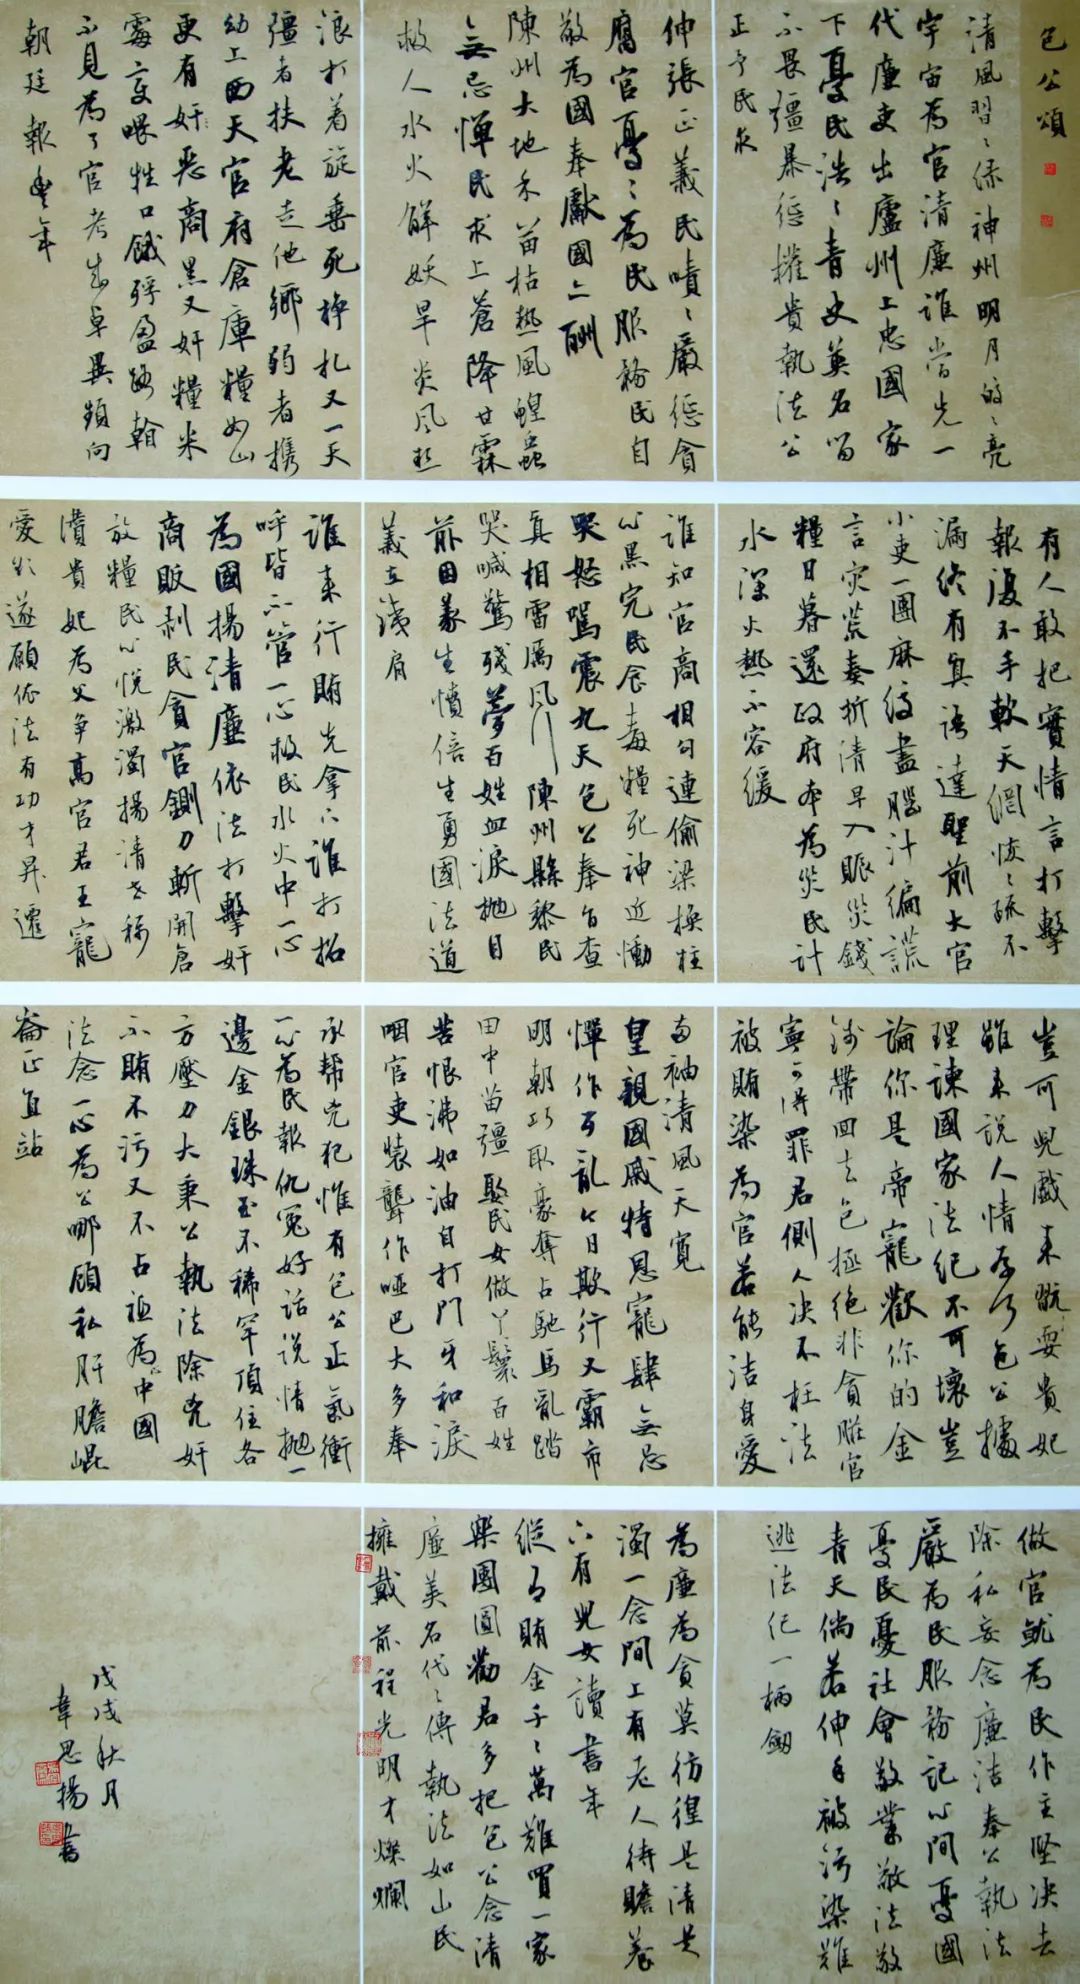 包公頌
清風習習綠神州明月皎皎亮
宇宙為官清廉誰當先一
代廉吏出廬州上忠國家
下憂民浩浩青史英名留
不畏彊暴懲權貴執法公
正予民
伸張正義民嘖嘖嚴懲貪
腐官憂憂為民服務民自
敬為國奉獻國亦酬
陳州大地禾苗枯熱風蝗蟲
無忌憚民求上蒼降甘霖
救人水火解妖旱炎風
浪打着旋垂死掙扎又一天
彊者扶老走他鄉弱者携
幼上西天官府倉庫糧如山
更有奸惡商黑又奸糧米
霉變喂牲口餓殍盈路
不見為了官考出卓異頻向
朝廷報豐年
有人敢把實情言打擊
報復不手軟天網恢恢疏不
漏終有真語達聖前大官
小吏一團麻絞盡腦汁編謊
言灾荒奏折清早入賑災錢
糧日暮還政府本為災民計
水深火熱不容緩
誰知官商相勾連偷梁換柱
心黑完民食毒糧死神近慟
哭怒駡震九天包公奉旨查
真相雷厲風行陳州縣黎民
哭喊驚殘夢百姓血淚拋目
前因義生憤倍生勇國法道
義立淺肩
誰来行賄先拿下誰打招
呼皆不管一心救民水火中一心
為國揚清廉依法打擊奸
商販剥民貪官鍘刀斬開倉
放糧民心悦激濁揚清世稱
讚貴妃為父争高官君王寵
愛欲遂願依法有功才昇遷
豈可兒戲来貺耍貴妃
雖来說人情存心包公據
理諫國家法紀不可壞豈
論你是帝寵歡你的金
錢帶回去包拯絶非貪賍官
寧可得罪君側人决不枉法
被賄染為官若能洁身愛
両袖清風天寬
皇親國戚特恩寵肆無忌
憚作歹亂今日欺行又霸市
明朝巧取豪奪占馳馬亂踏
田中苗彊娶民女做丫鬟百姓
苦恨沸如油自打門牙和淚
咽官吏裝聾作啞巴大多奉
承幫兇犯惟有包公正氣衝
一心為民報仇冤好話說情拋一
邊金銀珠玉不稀罕頂住各
方壓力大秉公執法除兇奸
不賄不污又不占祖為中國
法念一心為公哪顧私肝膽崐
崙正直站
做官就為民作主堅决去
除私妄念廉洁奉公執法
嚴為民服務記心間憂國
憂民憂社會敬業敬法敬
青天倘若伸手被污染難
逃法紀一柄劒
為廉為貪莫彷徨是清是
濁一念間上有老人待贍養
下有兒女讀書年
縱有賄金千千萬難買一家
樂團圓勸君多把包公念清
廉美名代代傳執法如山民
擁戴前程光明才燦爛
戊戌秋月
韋思揚書